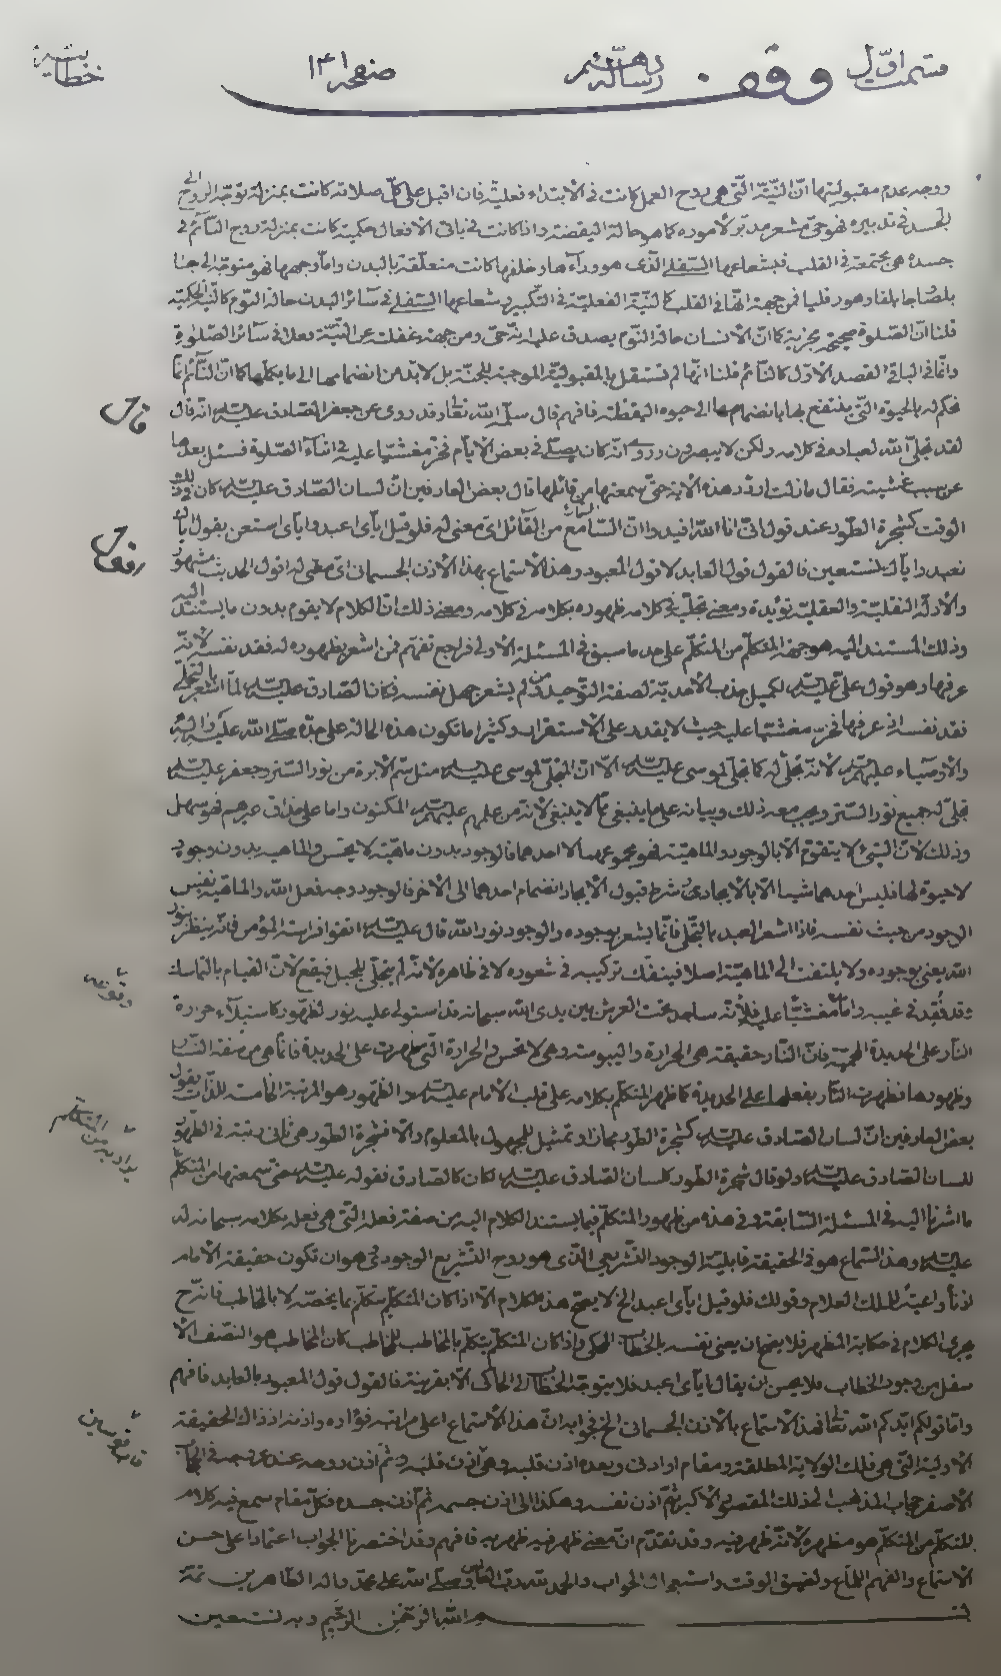 قسمت اوّل
وقف
رساله هشتم
صفحه ۱۴۱
خطابیّه
ووجه عدم مقبوليتها انّ النيّة الّتى هى روح العمل كانت فى الابتداء فعليّة فان اقبل على كلّ صلاته كانت بمنزلة توجّه الروح الى
الجسد فى تدبيره فهو حىّ مشعر مدبّر لاموره كما هو حالة اليقضة واذا كانت فى باقى الافعال حكمية كانت بمنزلة روح النّائم فى
جسده هى مجتمعة فى القلب فبشعاعها السّفلى الّذى هو ورآءها وخلفها كانت متعلّقة بالبدن وامّا وجهها فهو متوجّه الى
فمن جهة انّها فى القلب كالنيّة الفعليّة فى التّكبير وشعاعها السّفلى فى سآئر البدن حالة النّوم كالنّية الحكميّة
قلنا انّ الصّلوة صحيحة مجزية كما انّ الانسان حالة النّوم يصدق عليه انّه حىّ ومن جهة غفلته عن النيّة فعلا فى سآئر الصّلوة
وانّها فى الباقى القصد الاوّل كالنّائم قلنا انّها لم تستقل بالمقبوليّة الموجبة للجنّة بل لابدّ من انضمامها الى ما يكمّلها كما انّ النّآئم انّما
نحكم له بالحيوة الّتى ينتفع بها بانضمامها الى حيوة اليقظة فافهم قال سلّمه اللّه تعالى وقد روى عن جعفر الصّادق عليه السلام انّه قال
لقد تجلّى اللّه لعباده فى كلامه ولكن لا يبصرون وروى انّه كان يصلّى فى بعض الايّام فخرّ مغشيّا عليه فى اثنآء الصّلوة فسئل بعدها
عن سبب غشيته فقال مازلت اردّد هذه الاية حتّى سمعتها من قائلها قال بعض العارفين انّ لسان الصّادق عليه السلام كان فى ذلك
الوقت كشجرة الطّور عند قول انّى انا اللّه افيدوا انّ السّامع من القآئل اىّ معنى له فلو قيل بأياى اعبد واياى استعن بقول اياك
نعبد واياك نستعين فالقول قول العابد لا قول المعبود وهذا الاستماع بهذا الاذن الجسمانى اىّ معنى له اقول الحديث مشهور
والادلّة النقليّة والعقليّة تؤيده ومعنى تجلّيه فى كلامه ظهوره بكلامه فى كلامه ومعنى ذلك انّ الكلام لا يقوم بدون ما يستند اليه
وذلك المستند اليه هو جهة المتكلّم من المتكلّم على حد ما سبق فى المسئلة الاولى فراجع تفهم فمن اشعر بظهوره له فقد نفسه لانّه
عرفها وهو قول علىّ عليه السلام لكميل جذب الاحديّة لصفة التّوحيد ومن لم يشعر جهل نفسه فكان الصّادق عليه السلام لمّا اشعر بالتجلّى
فقد نفسه اذ عرفها فخرّ مغشيّا عليه حيث لا يقدر على الاستقرار وكثيرا ما تكون هذه الحالة على جدّه صلّى اللّه عليه وآله
والاوصياء عليهم السلام لانّه تجلّى له كما تجلّى لموسى عليه السلام الّا انّ المتجلّى لموسى عليه السلام مثل سّم الابرة من نور السّتر وجعفر عليه السلام
تجلّى له جميع نور السّتر ويجب معه ذلك وبيانه على ما ينبغى ممّا لا ينبغى لانّه من علمهم عليهم السلام المكنون وامّا على مذاق غيرهم فهو سهل
وذلك لانّ الشّىء لا يتقوّم الّا بالوجود والماهيّة فهو مجموعهما لا احدهما فالوجود بدون ماهيّة لا يحسّ والماهية بدون وجود
لا حيوة لها فليس احدهما شيئا الّا بالايجادى شرط قبول الايجاد انضمام احدهما الى الاخر فالوجود وجه فعل اللّه والماهيّة نفس
الوجود من حيث نفسه فاذا اشعر العبد بالتّجلّى فانّما يشعر بوجوده والوجود نور اللّه قال عليه السلام اتقوا فراسة المؤمن فانّه ينظر بنور
اللّه يعنى بوجوده ولا يلتفت الى الماهيّة اصلا فينفكّ تركيبه فى شعوره لا فى ظاهره لانّه لم يتجلّى للجبل فيقع لانّ القيام بالتماسك
وقد فُقِد فى غيبه وامّا مغشيّا عليه فلأنّه ساجد تحت العرش بين يدى اللّه سبحانه قد استولى عليه نور لظهور كاستيلآء حرارة
النّار على الحديدة المحميّة فانّ النّار حقيقة هى الحرارة واليبوسة وهى لا تحسّ والحرارة الّتى ظهرت على الحديدة فانّما هى من صفة النّار
وظهورها فظهرت النّار بفعلها على الحديدة كما ظهر المتكلّم بكلامه على قلب الامام عليه السلام والظّهور هو المرتبة الخامسة للذّات بقول
بعض العارفين انّ لسان الصّادق عليه السلام كشجرة الطّور مجاز وتمثيل للمجهول بالمعلوم والّا فشجرة الطّور هى ثانى رتبة فى الظّهور
للسان الصّادق عليه السلام ولو قال شجرة الطّور كلسان الصّادق عليه السلام لكان كالصّادق فقوله عليه السلام حتّى سمعتها من المتكلّم
ما اشرنا اليه فى المسئلة السّابقة وفى هذه من ظهور المتكلّم فيما يستند الكلام اليه من صفة فعله الّتى هى فعله بكلامه سبحانه له
عليه السلام وهذا السّماع هو فى الحقيقة قابليّة الوجود التّشريعى الّذى هو روح التّشريع الوجودى هو ان تكون حقيقة الامام
اذنا واعية للملك العلّام وقولك فلو قيل بأياى اعبد الخ لا يصحّ هذا الكلام الّا اذا كان المتكلّم تكلّم بما يخصّه لا بالمخاطب فانّه ح
يجرى الكلام فى حكاية المظهر فلا يصحّ ان يعنى نفسه بالخطاب المحكى واذ كان المتكلّم يتكلّم بالمخاطب للمخاطب كان المخاطب هو النّصف الا
سفل من وجود الخطاب فلا يحسن ان يقال اياى اعبد فلا يتوجّه الخطاب الى الحاكى الّا بقرينة فالقول قول المعبود بالعابد فافهم
وامّا قولكم ايّدكم اللّه تعالى فهذا الاستماع بالاذن الجسمانى الخ فجوابه انّ هذا الاستماع اعلى مراتبه فؤاده واذنه اذ ذاك الحقيقة
الاوليّة الّتى هى فلك الولاية المطلقة ومقام او ادنى وبعده اذن قلبه وهى اذن قلبه وثم اذن روحه عند عروجه فى الحجاب
الاصفر حجاب الذهب الى ذلك المقصى الاكبر ثم اذن نفسه وهكذا الى اذن جسمه ثم اذن جسده وكلّ مقام سمع فيه كلام
المتكلّم من المتكلّم هو مظهره لانّه ظهر فيه وقد تقدّم انّ معنى ظهر فيه ظهر به فافهم وقد اختصرنا الجواب اعتمادا على حسن
الاستماع والفهم اللمّاع ولضيق الوقت واستعجال الجواب والحمد للّه ربّ العالمين وصلّى اللّه على محمّد وآله الطّاهرين تمّت
بسم اللّه الرّحمن الرّحيم وبه نستعين
وقوعه
يراد به من المتكلّم
قاب قوسين